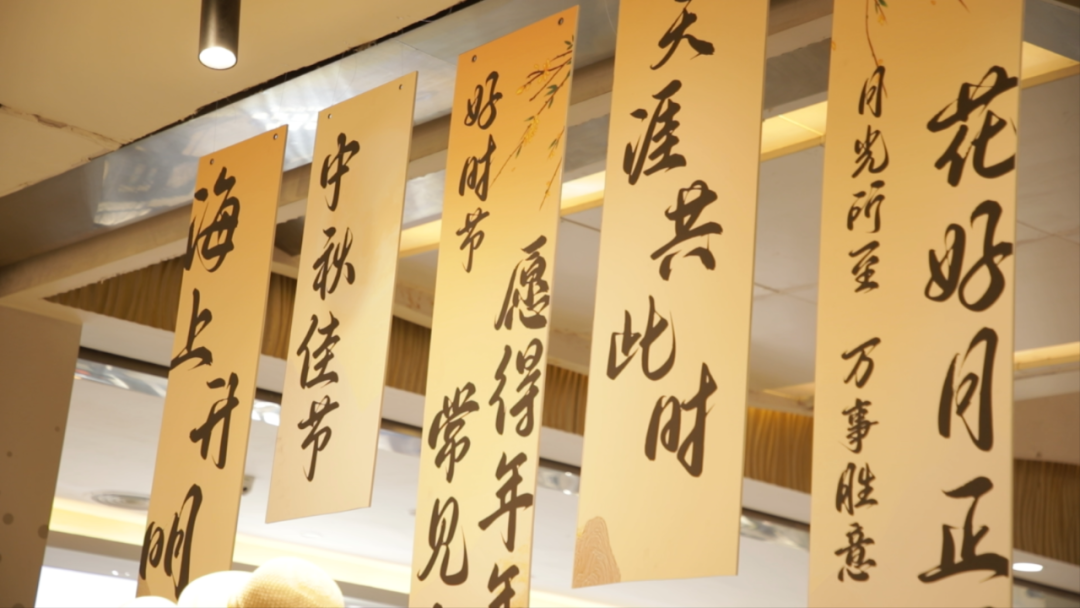 海上升明
中秋佳节
好时节
愿得年年
常见
天涯共此时
月光所至 万事胜意
花好月正